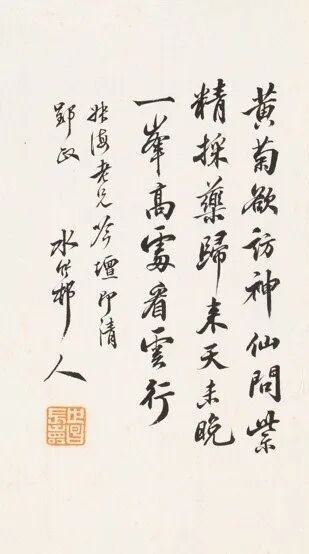 黄菊欲訪神仙問紫
精採藥歸来天未晚
一峯高處看雲行
海老兄吟壇即請
郢政
水竹邨人